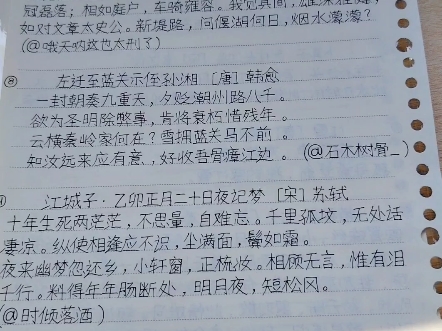 冠磊落；相如庭户，车骑雍容。我觉其间，雄深雅健，
如对文章太史公。新堤路，问偃湖何日，烟水濛濛？
(@哦天呐这也太刑了)
⑧ 左迁至蓝关示侄孙湘 [唐] 韩愈
一封朝奏九重天，夕贬潮州路八千。
欲为圣明除弊事，肯将衰朽惜残年。
云横秦岭家何在？雪拥蓝关马不前。
知汝远来应有意，好收吾骨瘴江边。(@石木树骨_)
江城子·乙卯正月二十日夜记梦 [宋] 苏轼
十年生死两茫茫，不思量，自难忘。千里孤坟，无处话
凄凉。纵使相逢应不识，尘满面，鬓如霜。
夜来幽梦忽还乡，小轩窗，正梳妆。相顾无言，惟有泪
千行。料得年年肠断处，明月夜，短松冈。
(@时倾落酒)